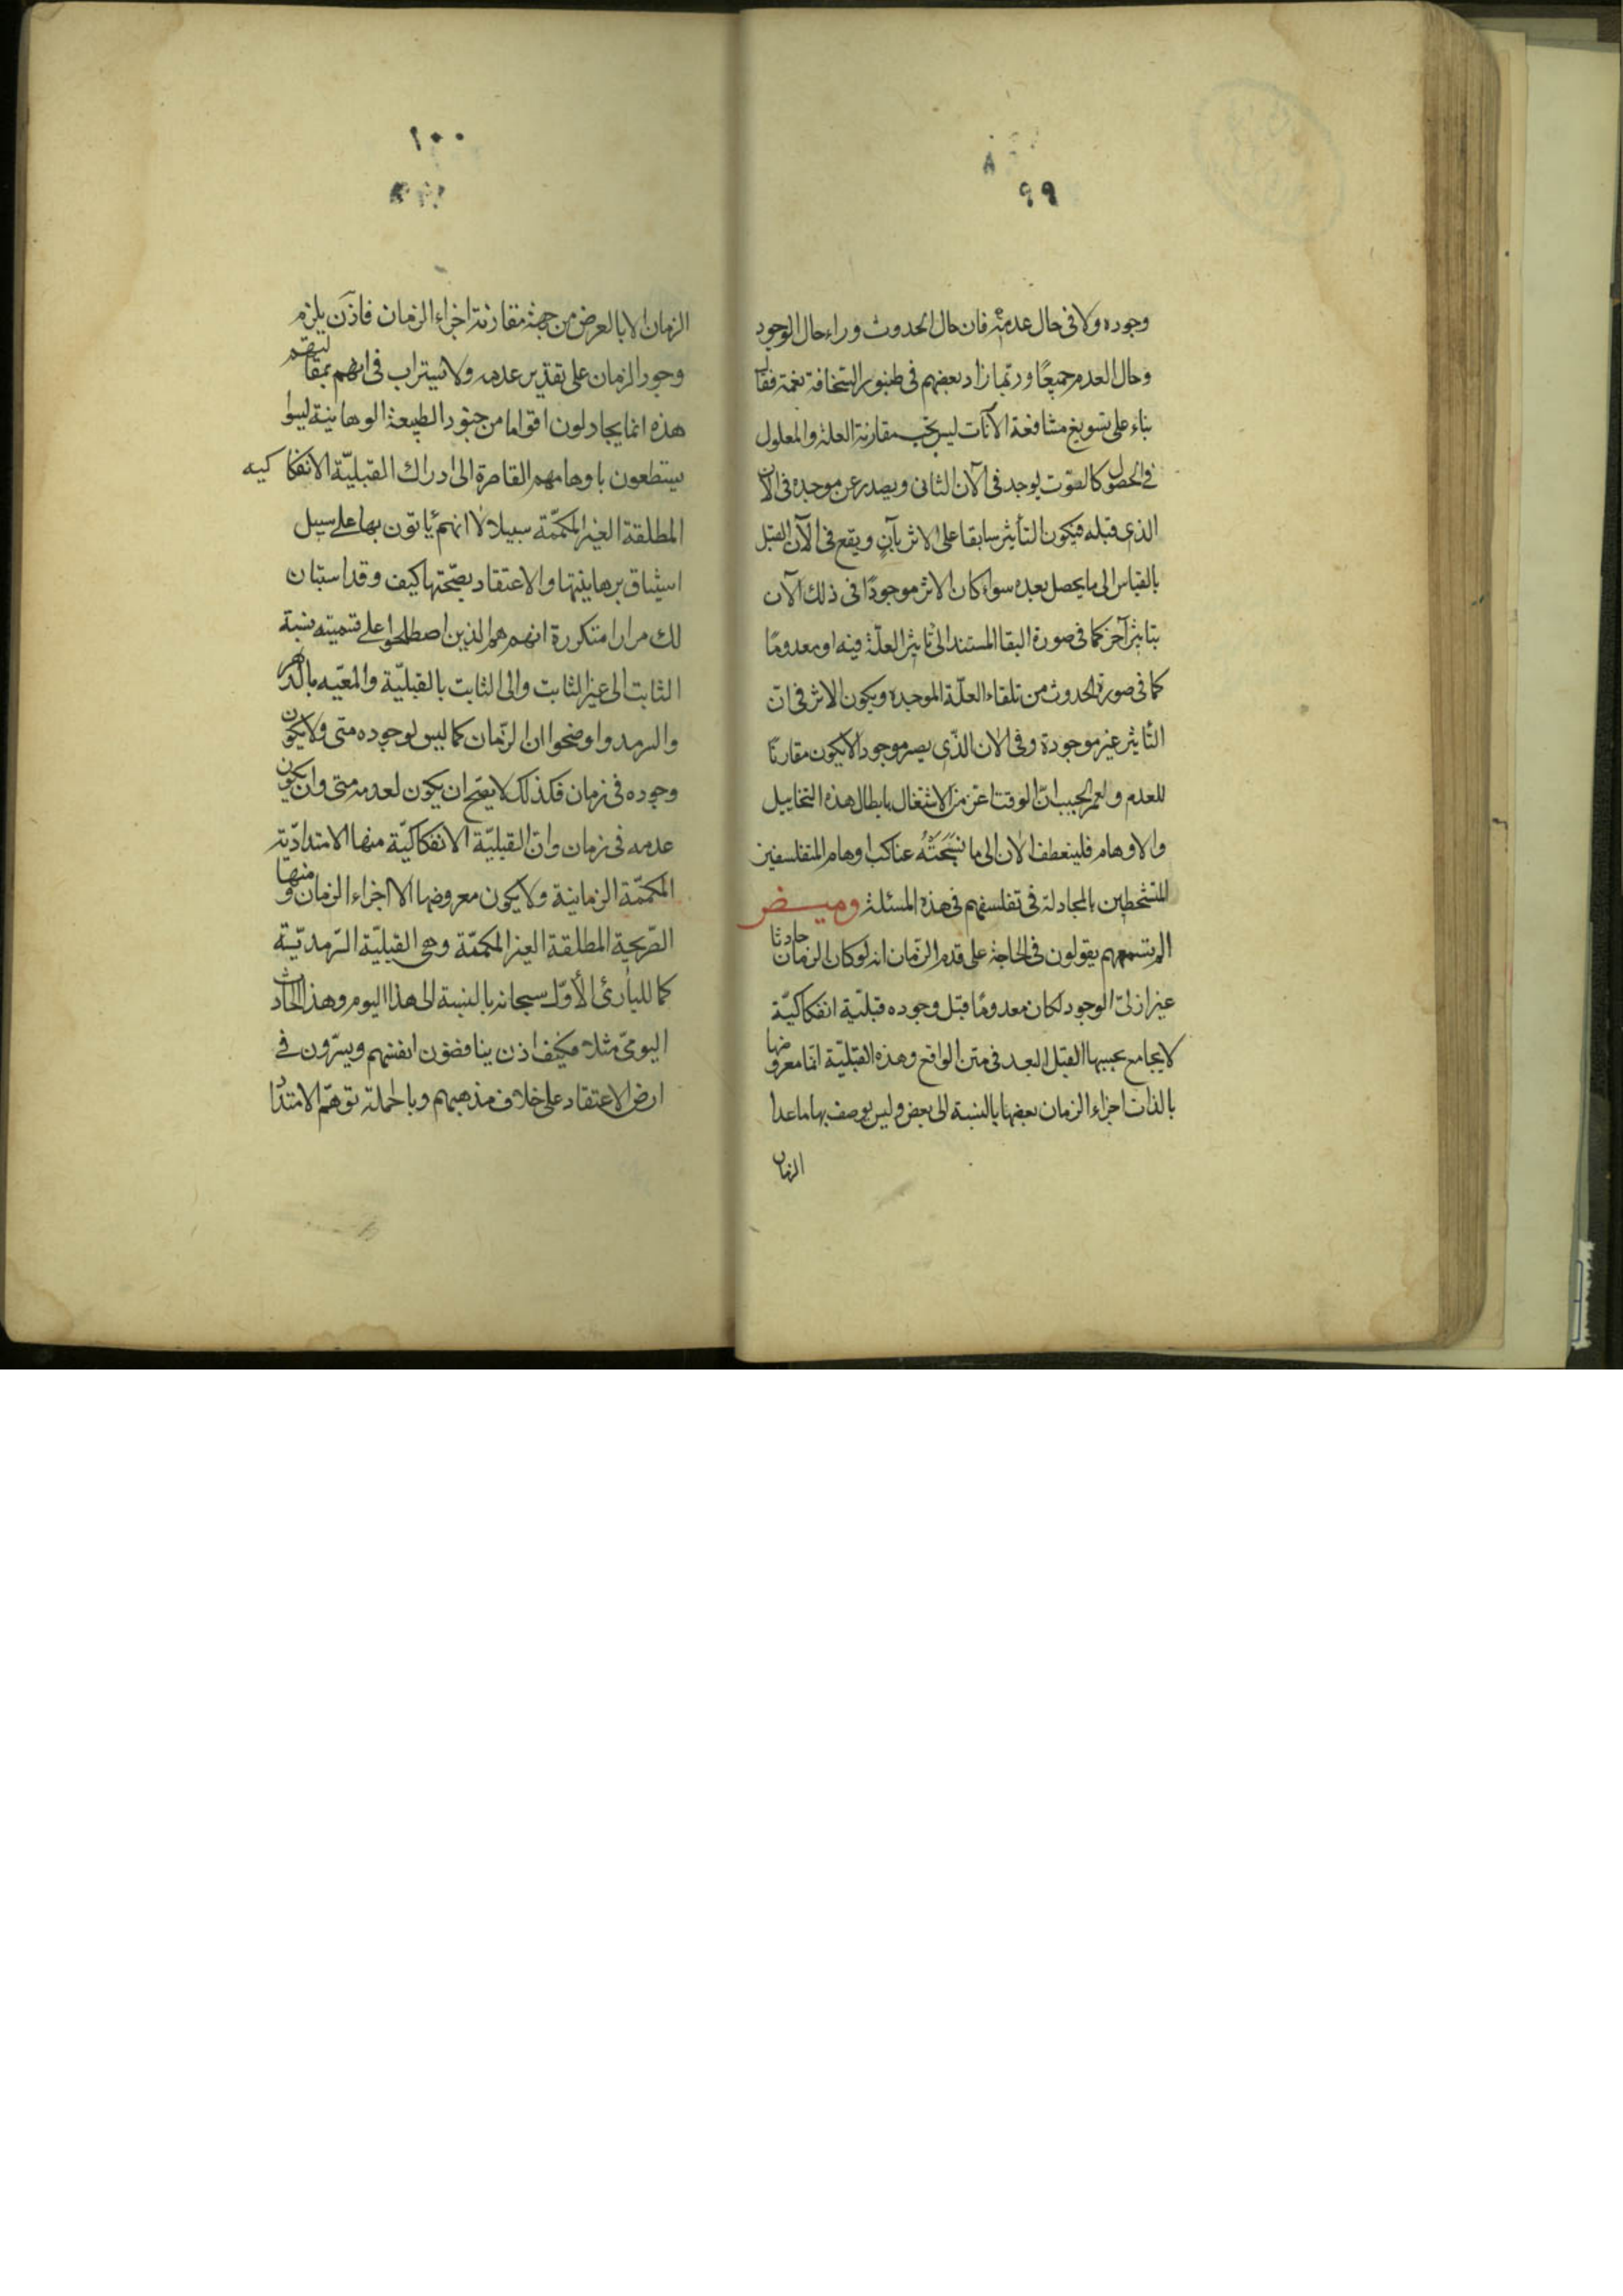 ٩٩
وجوده ولا فى حال عدمه فان حال الحدوث وراء حال الوجود
وحال العدم جميعًا وربّما زاد بعضهم فى طنبور السّخافة نغمة فقال
بناء على تسويغ مشافعة الآنات ليس يجب مقارنة العلة والمعلول
فى الحصول كالصّوت يوجد فى الآن الثانى ويصدر عن موجده فى الآن
الذى قبله فيكون التأثير سابقا على الاثر بآنٍ ويقع فى الآن القبل
بالقياس الى ما يحصل بعده سواء كان الاثر موجودًا فى ذلك الآن
بتاثير آخر كما فى صورة البقا المستند الى تاثير العلّة فيه او معدومًا
كما فى صورة الحدوث من تلقاء العلّة الموجده ويكون الاثر فى ان
التّاثير غير موجودة وفى الان الذّى يصير موجودا لا يكون مقارنًا
للعدم ولعمر الحبيب انّ الوقت اعزّ من الاشتغال بابطال هذه التخاييل
والاوهام فلينعطف الان الى ما نسَجَتْهُ عناكب اوهام المتفلسفين
المتشحطين بالمجادلة فى تفلسفهم فى هذه المسئلة وميض
الم تسمعهم يقولون فى الحاجة على قدم الزّمان انه لو كان الزمان حادثا
غير ازلىّ الوجود لكان معدومًا قبل وجوده قبليّة انفكاكيّة
لا يجامع بحسبها القبل البعد فى متن الواقع وهذه القبليّة انّما معروضها
بالذات اجزاء الزمان بعضها بالنسبة الى بعض وليس يوصف بها ما عدا
الزمان
١٠٠
الزمان الا بالعرض من جهة مقارنة اجزاء الزمان فاذن يلزم
وجود الزمان على تقدير عدمه ولا يستراب فى انهم بمقالتهم
هذه انما يجادلون اقواما من جنود الطبيعة الوهمانية ليسوا
يستطعون باوهامهم القاصرة الى ادراك القبليّة الانفكاكيه
المطلقة الغير المكمّمة سبيلا لا انهم يأتون بها على سبيل
استيثاق برهانيتها والاعتقاد بصّحتها كيف وقد استبان
لك مرارا متكررة انهم هم الذين اصطلحوا على تسميته نسبة
الثابت الى غير الثابت والى الثابت بالقبليّة والمعيّه بالدهر
والسرمد واوضحوا ان الزّمان كما ليس لوجوده متى ولا يكون
وجوده فى زمان فكذلك لا يصّح ان يكون لعدمه متى وان يكون
عدمه فى زمان وانّ القبليّة الانفكاكيّة منها الامتداديّة
المكمّمة الزمانية ولا يكون معروضها الا اجزاء الزمان ومنها
الصّريحية المطلقة الغير المكمّمة وهى القبليّة السّرمديّة
كما للبارئ الأوّل سبحانه بالنسبة الى هذا اليوم وهذا الحادث
اليومىّ مثلا فكيف اذن يناقضون انفسهم ويسيرون فى
ارض الاعتقاد على خلاف مذهبهم وبالجملة توهّم الامتداد